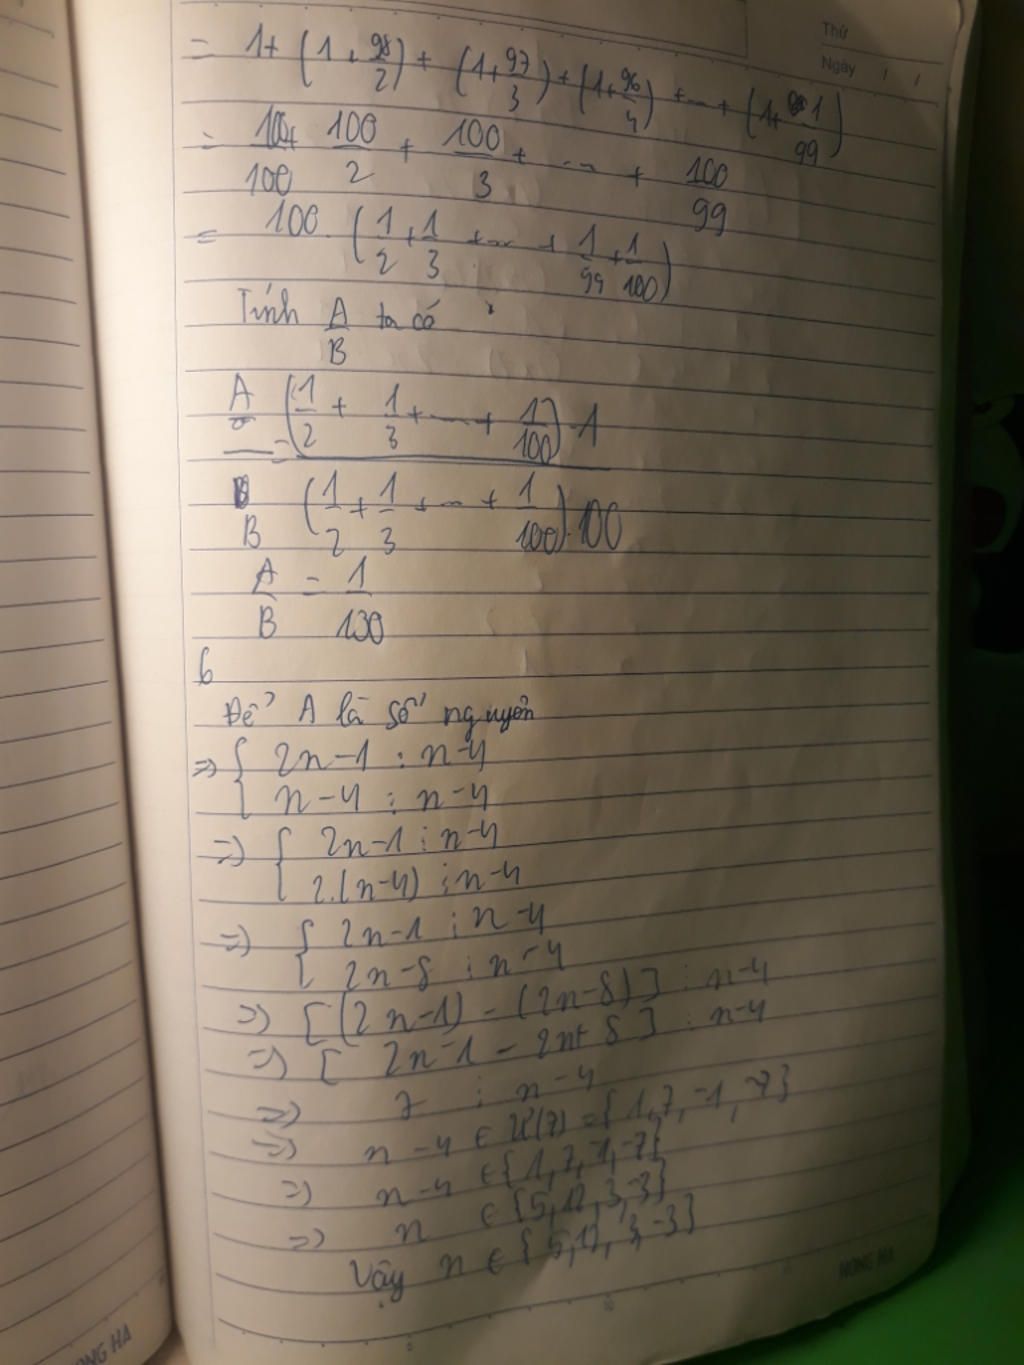 Thứ
Ngày / /
= 1+ (1+98/2) + (1+97/3) + (1+96/4) + ... + (1+1/99)
= 100/100 + 100/2 + 100/3 + ... + 100/99
= 100 . (1/2 + 1/3 + ... + 1/99 + 1/100)
Tính A/B ta có
A/B = (1/2 + 1/3 + ... + 1/100) . 1 / (1/2 + 1/3 + ... + 1/100) . 100
A/B = 1/100
6
Để A là số nguyên
=> { 2n-1 ⋮ n-4
n-4 ⋮ n-4
=> { 2n-1 ⋮ n-4
2.(n-4) ⋮ n-4
=> { 2n-1 ⋮ n-4
2n-8 ⋮ n-4
=> [(2n-1) - (2n-8)] ⋮ n-4
=> [ 2n-1 - 2n+8 ] ⋮ n-4
=> 7 ⋮ n-4
=> n-4 ∈ Ư(7) = {1,7,-1,-7}
=> n-4 ∈ {1,7,-1,-7}
=> n ∈ {5,11,3,-3}
Vậy n ∈ {5,11,3,-3}
HONG HA
HONG HA